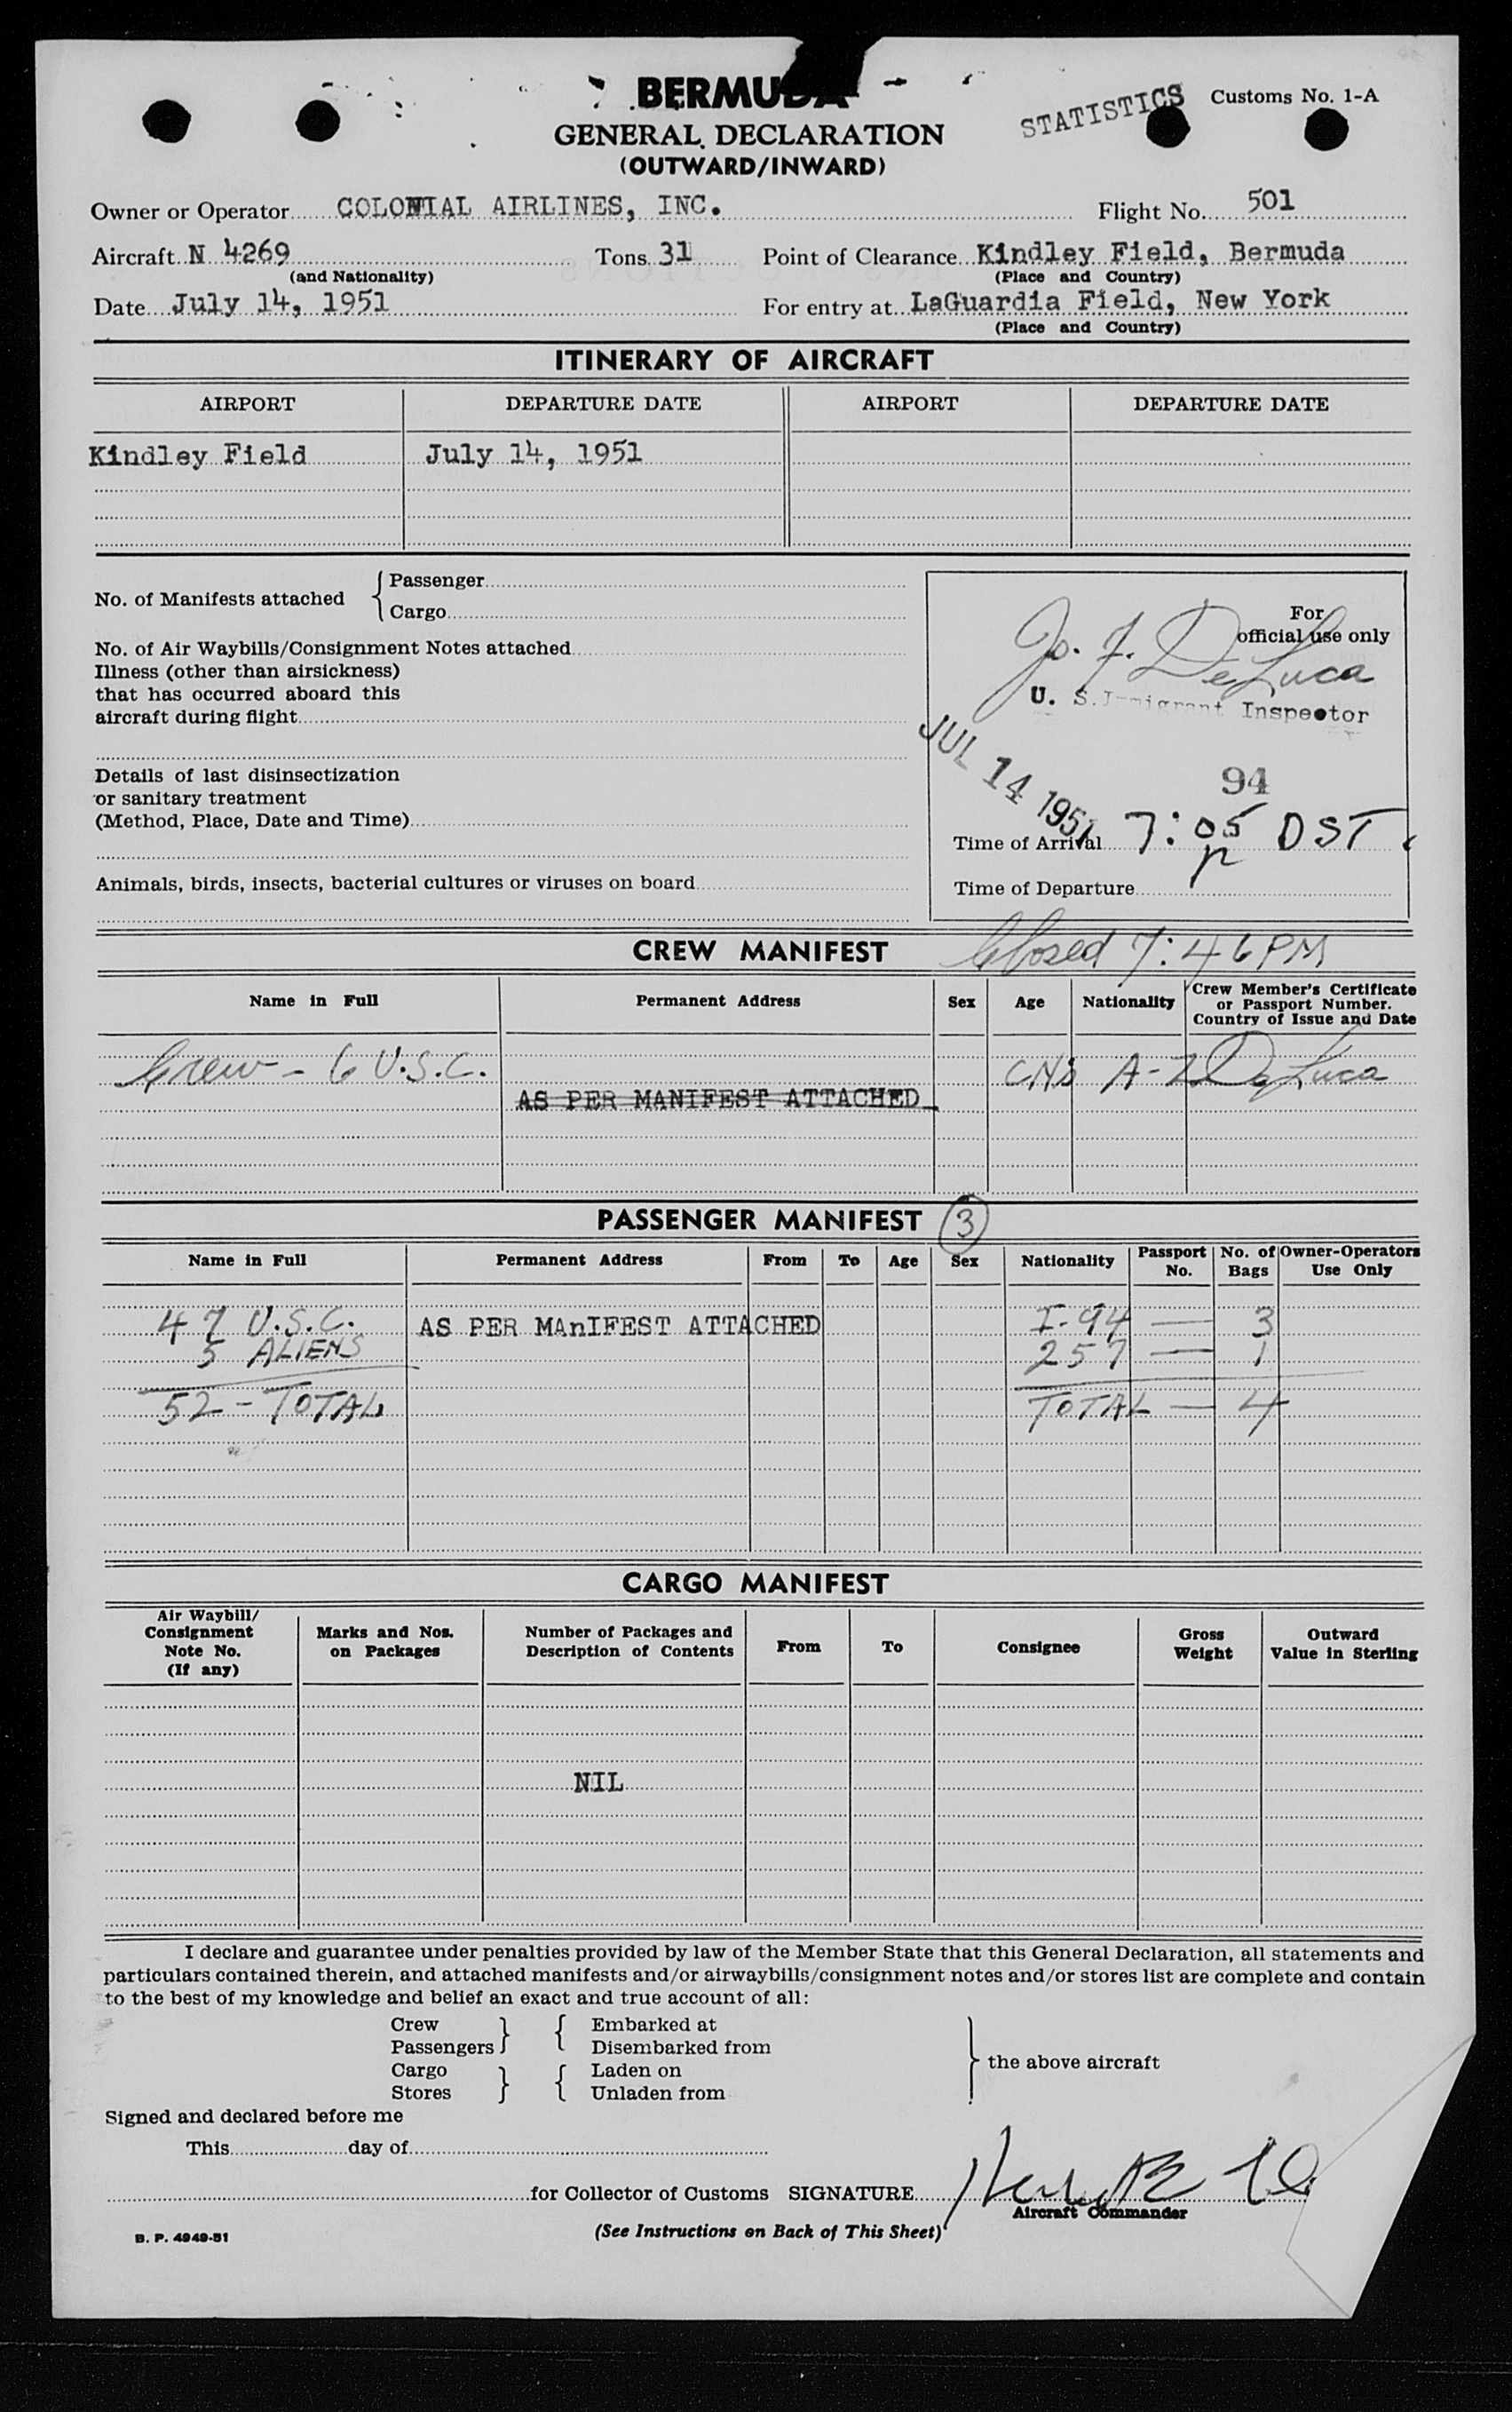 BERMUDA
STATISTICS
Customs No. 1-A
GENERAL DECLARATION
(OUTWARD/INWARD)
Owner or Operator COLONIAL AIRLINES, INC. Flight No. 501
Aircraft N 4269 Tons 31 Point of Clearance Kindley Field, Bermuda
(and Nationality) (Place and Country)
Date July 14, 1951 For entry at LaGuardia Field, New York
(Place and Country)
ITINERARY OF AIRCRAFT
AIRPORT DEPARTURE DATE AIRPORT DEPARTURE DATE
Kindley Field July 14, 1951
No. of Manifests attached { Passenger
Cargo
No. of Air Waybills/Consignment Notes attached
Illness (other than airsickness)
that has occurred aboard this
aircraft during flight
Details of last disinsectization
or sanitary treatment
(Method, Place, Date and Time)
Animals, birds, insects, bacterial cultures or viruses on board
For
official use only
Jo. F. DeLuca
U. S. Immigrant Inspector
JUL 14 1951
94
Time of Arrival 7:05 DST
p
Time of Departure
Closed 7:46 PM
CREW MANIFEST
Name in Full Permanent Address Sex Age Nationality Crew Member's Certificate
or Passport Number.
Country of Issue and Date
Crew - 6 U.S.C. A-2 DeLuca
AS PER MANIFEST ATTACHED
PASSENGER MANIFEST 3
Name in Full Permanent Address From To Age Sex Nationality Passport No. No. of Bags Owner-Operators Use Only
47 U.S.C. AS PER MAnIFEST ATTACHED I-94 — 3
5 ALIENS 257 — 1
52 - TOTAL TOTAL — 4
CARGO MANIFEST
Air Waybill/
Consignment
Note No.
(If any)
Marks and Nos.
on Packages
Number of Packages and
Description of Contents
From To Consignee
Gross
Weight
Outward
Value in Sterling
NIL
I declare and guarantee under penalties provided by law of the Member State that this General Declaration, all statements and
particulars contained therein, and attached manifests and/or airwaybills/consignment notes and/or stores list are complete and contain
to the best of my knowledge and belief an exact and true account of all:
Crew } { Embarked at
Passengers Disembarked from
Cargo } { Laden on
Stores Unladen from
} the above aircraft
Signed and declared before me
This day of
for Collector of Customs SIGNATURE
Aircraft Commander
B. P. 4949-51
(See Instructions on Back of This Sheet)